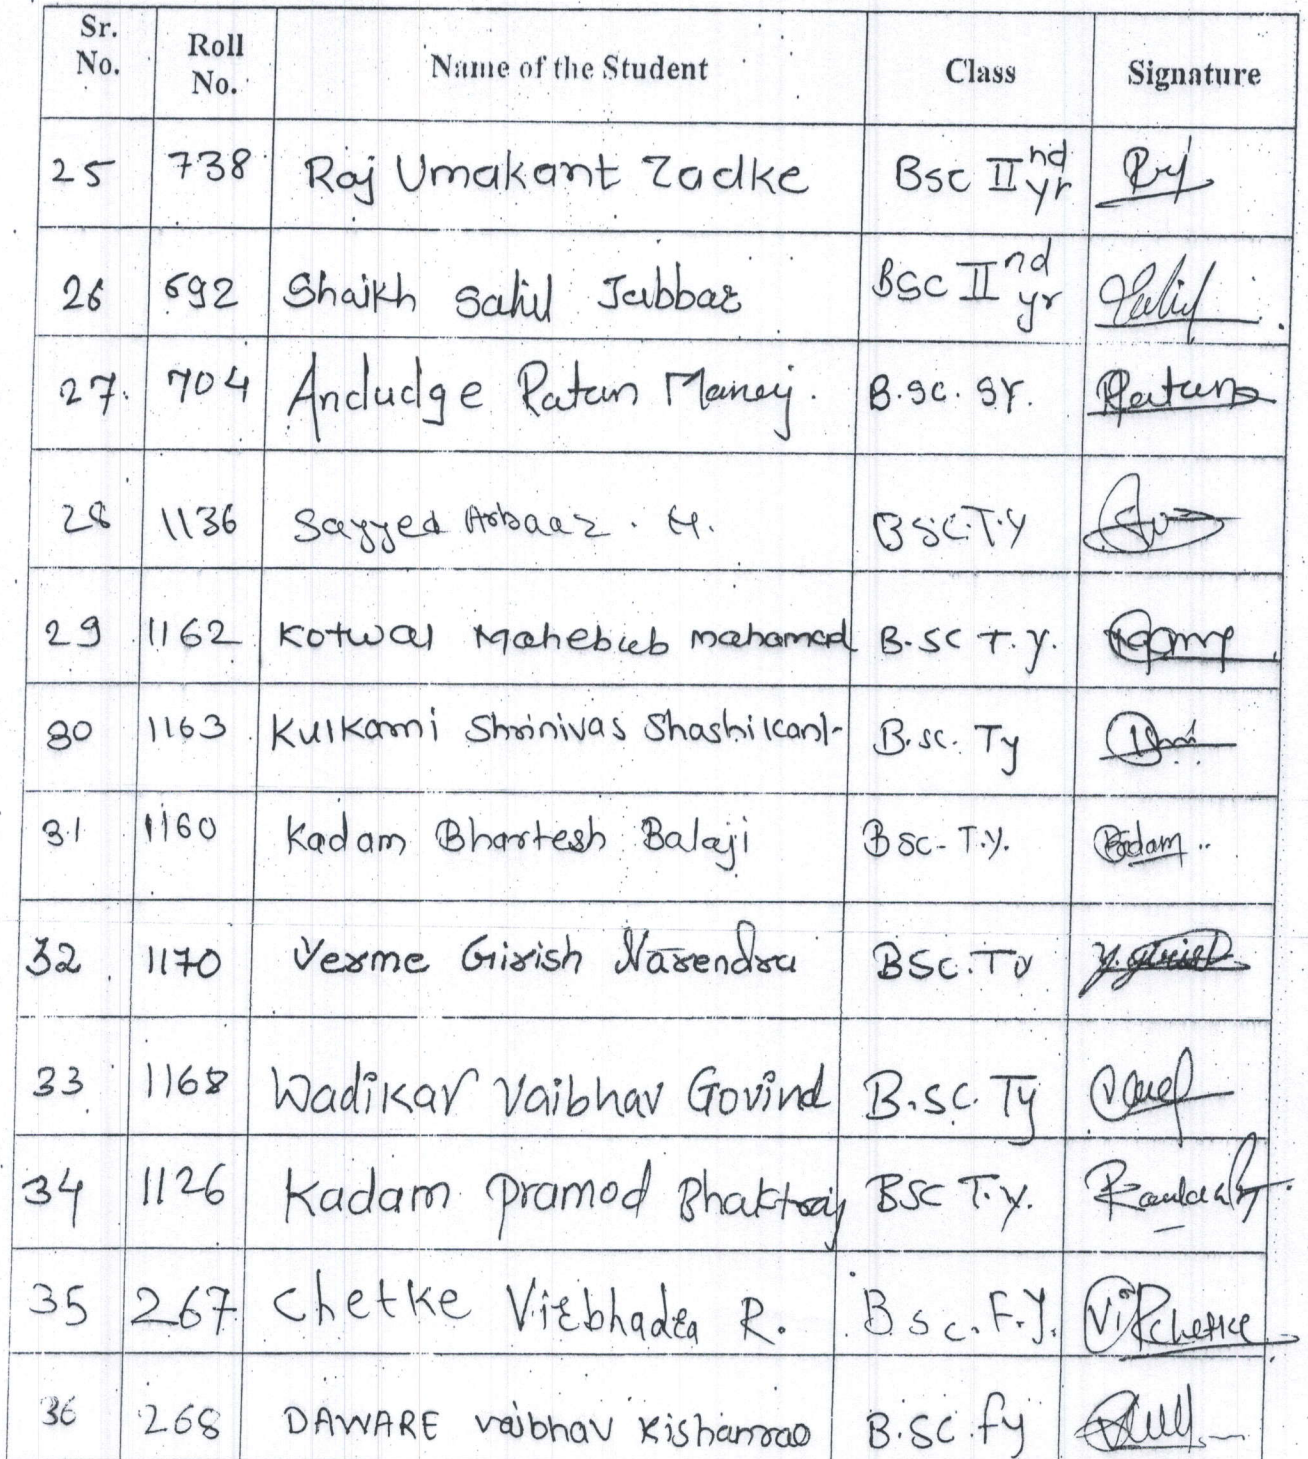 Sr. No. Roll No. Name of the Student Class Signature
25 738 Raj Umakant Zadke BSc II nd yr Raj
26 692 Shaikh Sahil Jabbar BSc II nd yr Sahil
27. 704 Andudge Ratan Manoj. B.Sc. SY. Ratan
28 1136 Sayyed Arbaaz . H. BSC.T.Y
29 1162 Kotwal Mahebub mahamad B.SC T.Y.
30 1163 Kulkarni Shrinivas Shashikant B.Sc. Ty
31 1160 Kadam Bhartesh Balaji BSC- T.Y. Kadam
32 1170 Verme Girish Narendra BSC.TY Y.girish
33 1168 Wadikar Vaibhav Govind B.SC. Ty
34 1126 Kadam Pramod Bhaktraj BSC T.Y.
35 267 Chetke Virbhadra R. B Sc. F.Y. VRchetke
36 268 DAWARE vaibhav Kishanrao B.SC.fy